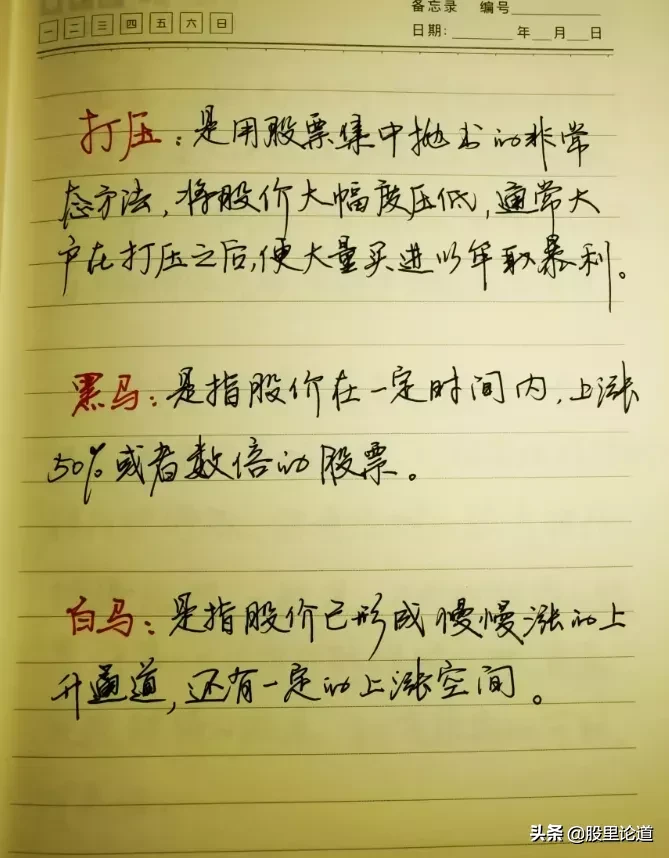 备忘录 编号
一 二 三 四 五 六 日
日期: 年 月 日
打压：是用股票集中抛出的非常
态方法，将股价大幅度压低，通常大
户在打压之后，便大量买进以牟取暴利。
黑马：是指股价在一定时间内，上涨
50%或者数倍的股票。
白马：是指股价已形成慢慢涨的上
升通道，还有一定的上涨空间。
头条 @股里论道